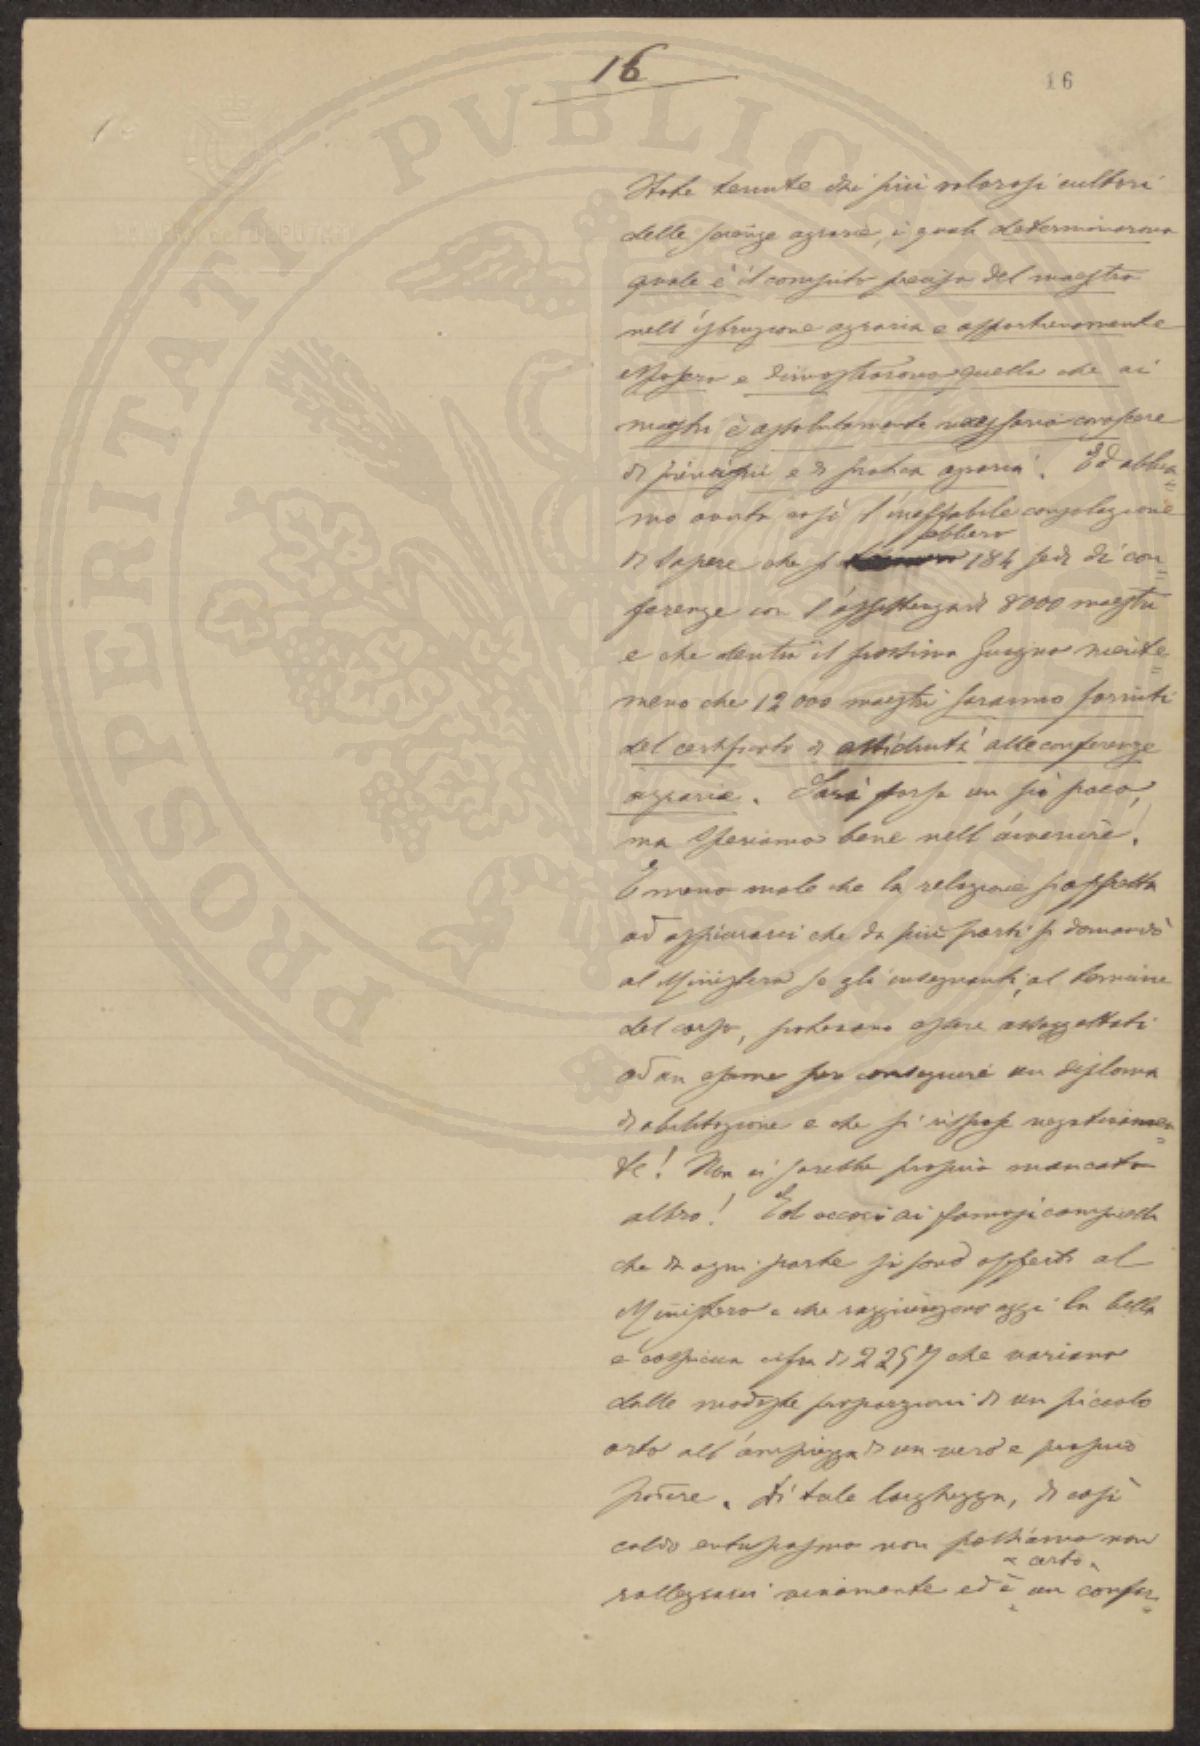 16
16
PROSPERITATI PVBLICAE
CAMERA DEI DEPUTATI
state tenute dai più valorosi cultori
delle scienze agrarie, i quali determinarono
quale è il compito preciso del maestro
nell'istruzione agraria e opportunamente
esposero e dimostrarono quello che ai
maestri è assolutamente necessario conoscere
di principii e di pratica agraria. Ed abbia=
mo avuto così l'ineffabile consolazione
ebbero
di sapere che si 184 sedi di con=
ferenze con l'assistenza di 8000 maestri
e che dentro il prossimo Giugno niente=
meno che 12000 maestri saranno forniti
del certificato di assiduità alle conferenze
agrarie. Sarà forse un po' poco,
ma speriamo bene nell'avvenire.
E meno male che la relazione s'affretta
ad assicurarci che da più parti si domandò
al Ministero se gli insegnanti, al termine
del corso, potevano essere assoggettati
ad un esame per conseguire un diploma
di abilitazione e che si rispose negativamen=
te! Non ci sarebbe proprio mancato
altro! Ed eccoci ai famosi campicelli
che da ogni parte si sono offerti al
Ministero e che raggiungono oggi la bella
e cospicua cifra di 2257 che variano
dalle modeste proporzioni di un piccolo
orto all'ampiezza di un vero e proprio
podere. Di tale larghezza, di così
caldo entusiasmo non possiamo non
certo
rallegrarci vivamente ed è un confor=